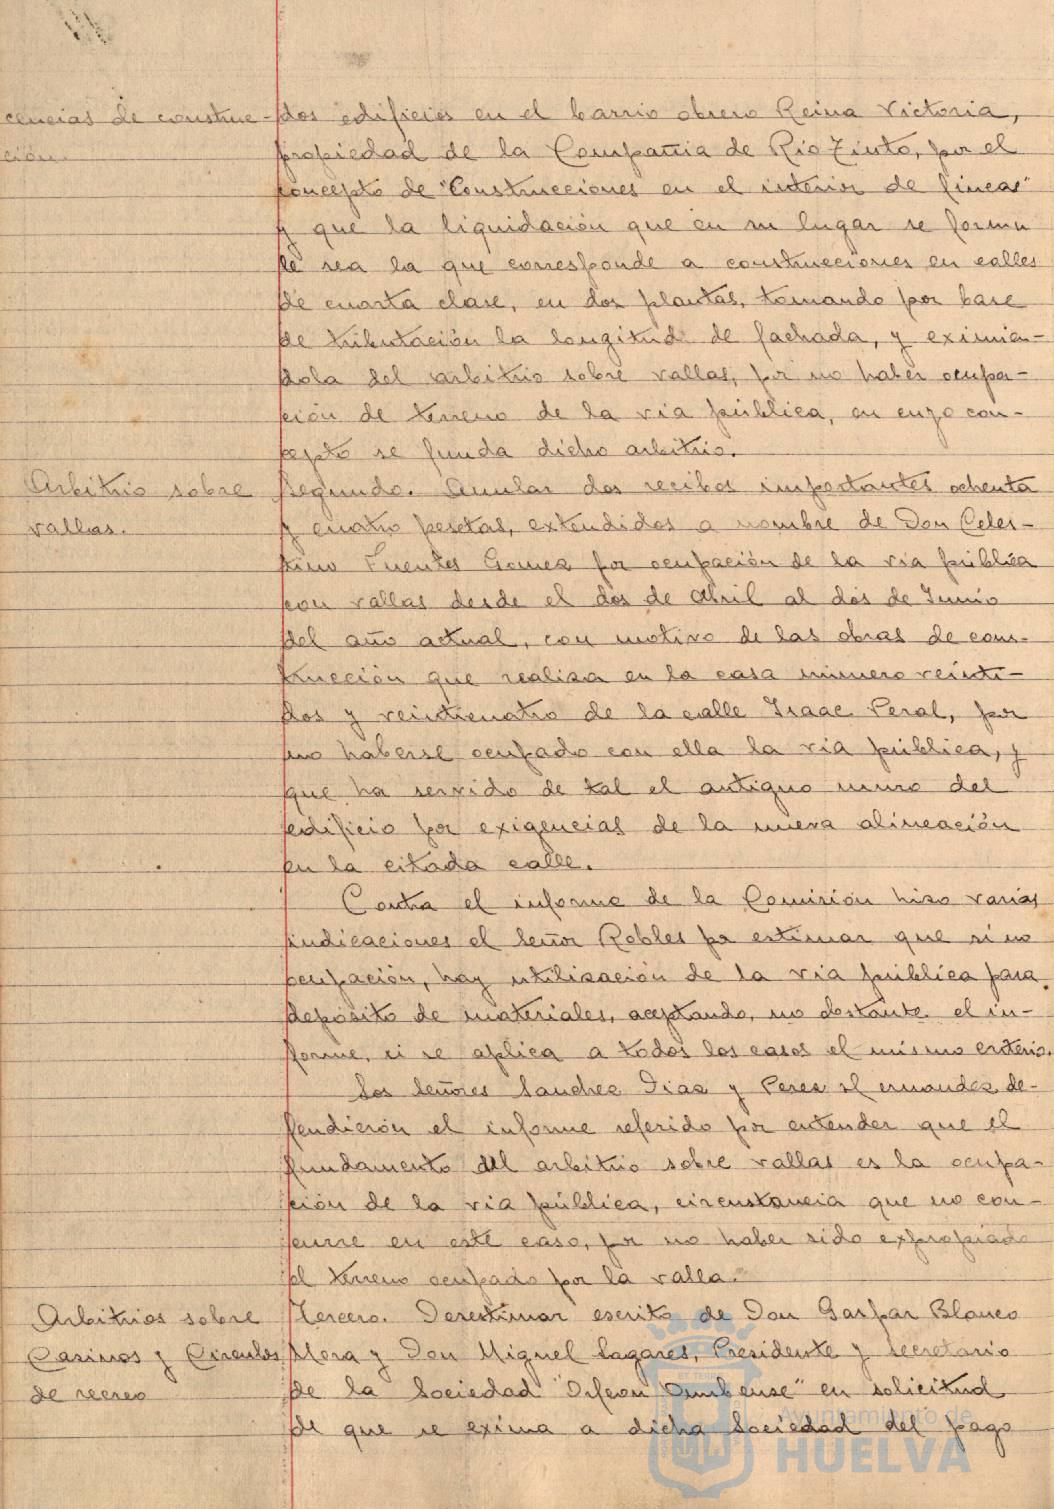 cencias de construc-
ción.
dos edificios en el barrio obrero Reina Victoria,
propiedad de la Compañia de Rio Tinto, por el
concepto de "Construcciones en el interior de fincas"
y que la liquidación que en su lugar se formu
le sea la que corresponde a construcciones en calles
de cuarta clase, en dos plantas, tomando por base
de tributación la longitud de fachada, y eximien-
dola del arbitrio sobre vallas, por no haber ocupa-
ción de terreno de la via pública, en cuyo con-
cepto se funda dicho arbitrio.
Arbitrio sobre
vallas.
Segundo. Anular dos recibos importantes ochenta
y cuatro pesetas, extendidos a nombre de Don Celes-
tino Fuentes Gomez por ocupación de la via pública
con vallas desde el dos de Abril al dos de Junio
del año actual, con motivo de las obras de cons-
trucción que realiza en la casa número veinti-
dos y veinticuatro de la calle Isaac Peral, por
no haberse ocupado con ella la via pública, y
que ha servido de tal el antiguo muro del
edificio por exigencias de la nueva alineación
en la citada calle.
Contra el informe de la Comisión hizo varias
indicaciones el Señor Robles por estimar que si no
ocupación, hay utilización de la via pública para
depósito de materiales, aceptando, no obstante el in-
forme, si se aplica a todos los casos el mismo criterio.
Los Señores Sanchez Diaz y Perez Hernandez de-
fendieron el informe referido por entender que el
fundamento del arbitrio sobre vallas es la ocupa-
ción de la via pública, circunstancia que no con-
curre en este caso, por no haber sido expropiado
el terreno ocupado por la valla.
Arbitrios sobre
Casinos y Circulos
de recreo
Tercero. Desestimar escrito de Don Gaspar Blanco
Mora y Don Miguel Lagares, Presidente y Secretario
de la Sociedad "Orfeon Onubense" en solicitud
de que se exima a dicha Sociedad del pago
Ayuntamiento de
HUELVA